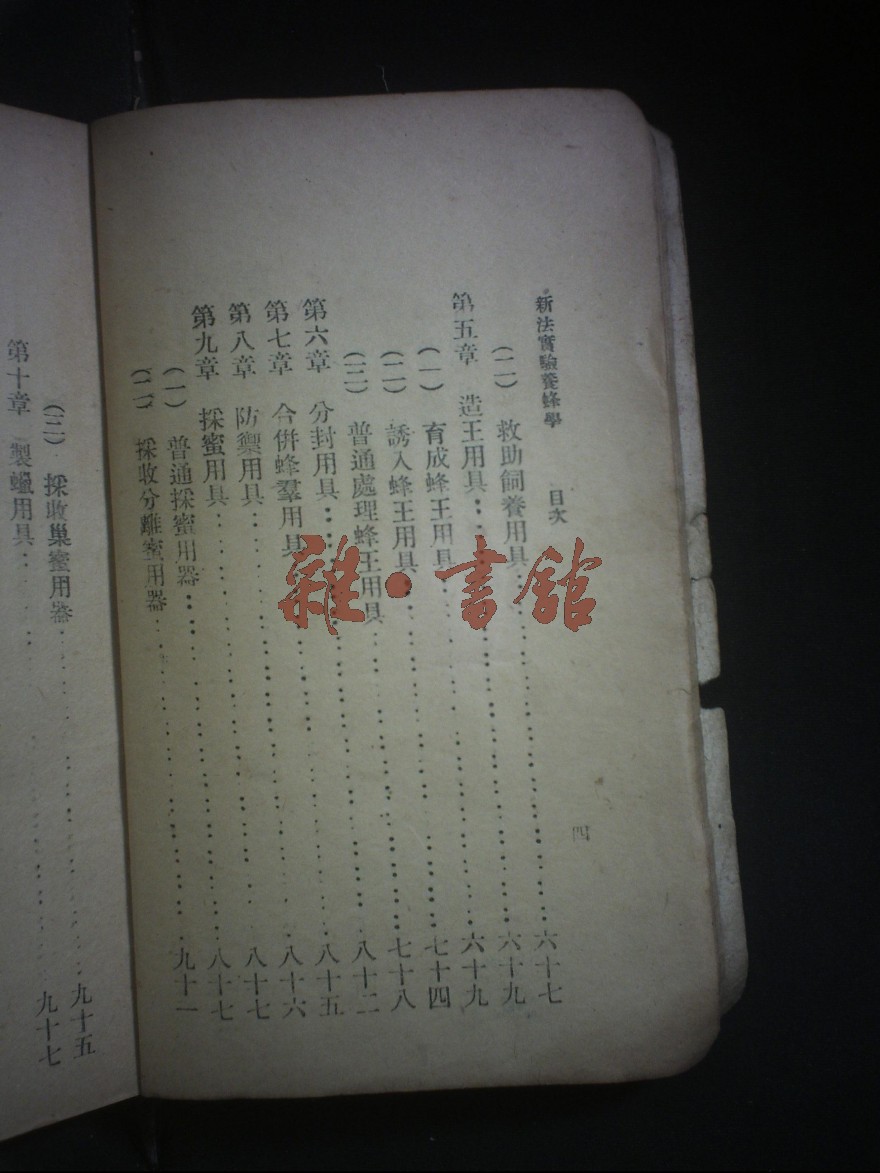 新法實驗養蜂學 目次 四
(二) 救助飼養用具……六十七
第五章 造王用具……六十九
(一) 育成蜂王用具……六十九
(二) 誘入蜂王用具……七十四
(三) 普通處理蜂王用具……七十八
第六章 分封用具……八十二
第七章 合併蜂羣用具……八十五
第八章 防禦用具……八十六
第九章 採蜜用具……八十七
(一) 普通採蜜用器……八十七
(二) 採收分離蜜用器……九十一
(三) 採收巢蜜用器……九十五
第十章 製蠟用具……九十七
雜·書館